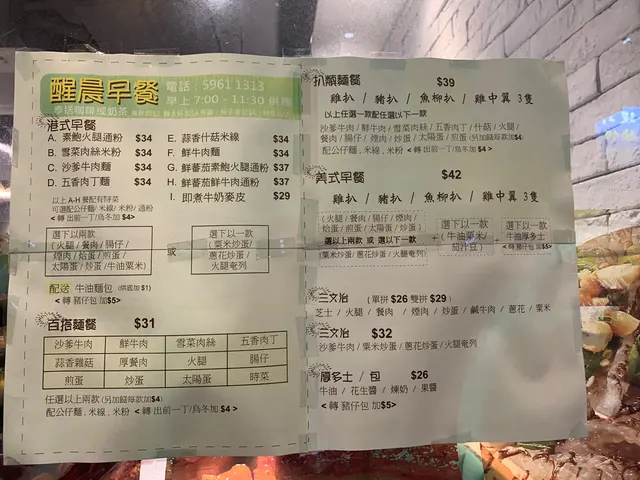 醒晨早餐
電話：5961 1313
早上 7:00 - 11:30 供應
港式早餐
A. 素鮑火腿通粉 $34
B. 雪菜肉絲米粉 $34
C. 沙爹牛肉麵 $34
D. 五香肉丁麵 $34
E. 蒜香什菇米線 $34
F. 鮮牛肉麵 $34
G. 鮮蕃茄素鮑火腿通粉 $37
H. 鮮蕃茄鮮牛肉通粉 $37
I. 即煮牛奶麥皮 $29
以上 A-H 餐配有時菜
可選配公仔麵/米線/米粉/通粉
< 轉出前一丁/烏冬加 $4>
選下以兩款
(火腿/餐肉/腸仔/
煙肉/焓蛋/煎蛋/
太陽蛋/炒蛋/牛油粟米)
或
選下以一款
(粟米炒蛋/
蔥花炒蛋/
火腿奄列
配送 牛油麵包 (烘底加 $1)
< 轉 豬仔包 加$5>
百搭麵餐 $31
沙爹牛肉 鮮牛肉 雪菜肉絲 五香肉丁
蒜香雜菇 厚餐肉 火腿 腸仔
煎蛋 炒蛋 太陽蛋 時菜
任選以上兩款 (另加餸每款加$4)
配公仔麵 . 米線 . 米粉 < 轉 出前一丁/烏冬加 $4 >
扒類麵餐 $39
雞扒 / 豬扒 / 魚柳扒 / 雞中翼 3隻
以上任選一款配任選以下一款
沙爹牛肉/鮮牛肉/雪菜肉絲/五香肉丁/什菇/火腿/
餐肉/腸仔/煙肉/炒蛋/太陽蛋/煎蛋 (另加餸每款加$4)
配公仔麵 , 米線 , 米粉 < 轉 出前一丁/烏冬 加 $4 >
美式早餐 $42
雞扒 / 豬扒 / 魚柳扒 / 雞中翼 3隻
(火腿/餐肉/腸仔/煙肉/
焓蛋/煎蛋/太陽蛋/炒蛋)
選以上兩款 或 選以下一款
(粟米炒蛋/蔥花炒蛋/火腿奄列)
+
選下以一款
(牛油粟米/
茄汁豆)
+
選下以一款
牛油厚多士
< 轉豬仔包 加$5>
三文治 (單拼 $26 雙拼 $29)
芝士 / 火腿 / 餐肉 / 煙肉 / 炒蛋 / 鹹牛肉 / 蔥花 / 粟米
三文治 $32
沙爹牛肉/粟米炒蛋/蔥花炒蛋/火腿奄列
厚多士 / 包 $26
牛油 / 花生醬 / 煉奶 / 果醬
< 轉 豬仔包 加$5>